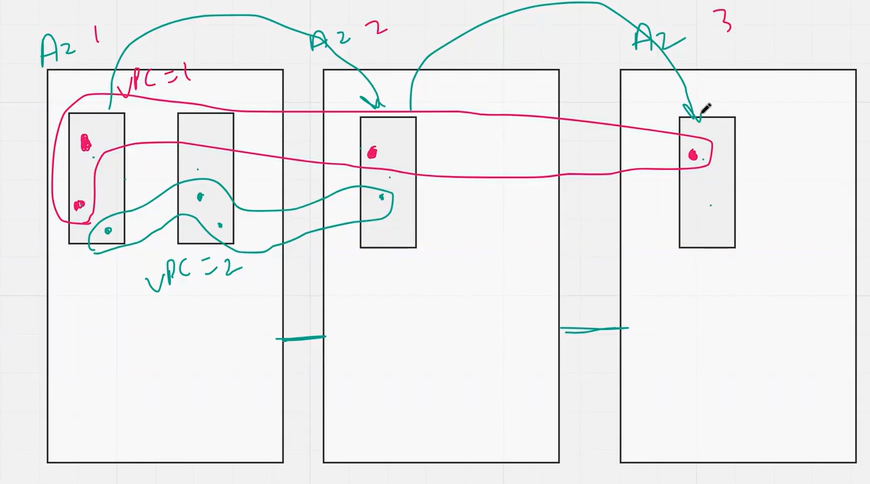 Az 1
Az 2
Az 3
VPC=1
VPC=2